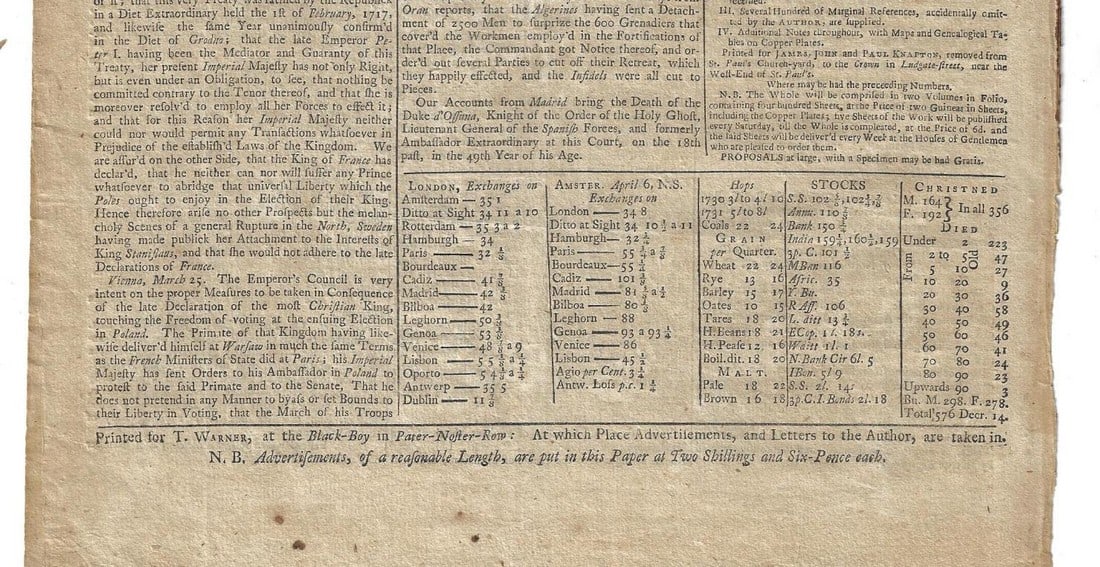 of it; that this very Treaty was ratified by the Republick
in a Diet Extraordinary held the 1st of February, 1717,
and likewise the same Year unanimously confirm'd
in the Diet of Grodno; that the late Emperor Pe-
ter I. having been the Mediator and Guaranty of this
Treaty, her present Imperial Majesty has not only Right,
but is even under an Obligation, to see, that nothing be
committed contrary to the Tenor thereof, and that she is
moreover resolv'd to employ all her Forces to effect it;
and that for this Reason her Imperial Majesty neither
could nor would permit any Transactions whatsoever in
Prejudice of the establish'd Laws of the Kingdom. We
are assur'd on the other Side, that the King of France has
declar'd, that he neither can nor will suffer any Prince
whatsoever to abridge that universal Liberty which the
Poles ought to enjoy in the Election of their King.
Hence therefore arise no other Prospects but the melan-
choly Scenes of a general Rupture in the North, Sweden
having made publick her Attachment to the Interests of
King Stanislaus, and that she would not adhere to the late
Declarations of France.
Vienna, March 25. The Emperor's Council is very
intent on the proper Measures to be taken in Consequence
of the late Declaration of the most Christian King,
touching the Freedom of voting at the ensuing Election
in Poland. The Primate of that Kingdom having like-
wise deliver'd himself at Warsaw in much the same Terms
as the French Ministers of State did at Paris; his Imperial
Majesty has sent Orders to his Ambassador in Poland to
protest to the said Primate and to the Senate, That he
does not pretend in any Manner to byass or set Bounds to
their Liberty in Voting, that the March of his Troops
Oran reports, that the Algerines having sent a Detach-
ment of 2500 Men to surprize the 600 Grenadiers that
cover'd the Workmen employ'd in the Fortifications of
that Place, the Commandant got Notice thereof, and or-
der'd out several Parties to cut off their Retreat, which
they happily effected, and the Infidels were all cut to
Pieces.
Our Accounts from Madrid bring the Death of the
Duke d'Ossuna, Knight of the Order of the Holy Ghost,
Lieutenant General of the Spanish Forces, and formerly
Ambassador Extraordinary at this Court, on the 18th
past, in the 49th Year of his Age.
III. Several Hundred of Marginal References, accidentally omit-
ted by the AUTHOR, are supplied.
IV. Additional Notes throughout, with Maps and Genealogical Ta-
bles on Copper Plates.
Printed for JAMES, JOHN and PAUL KNAPTON, removed from
St. Paul's Church-yard, to the Crown in Ludgate-street, near the
West-End of St. Paul's.
Where may be had the preceeding Numbers.
N. B. The Whole will be comprised in two Volumes in Folio,
containing four hundred Sheets, at the Price of two Guineas in Sheets,
including the Copper Plates; five Sheets of the Work will be published
every Saturday, till the Whole is compleated, at the Price of 6d. and
the said Sheets will be deliver'd every Week at the Houses of Gentlemen
who are pleased to order them.
PROPOSALS at large, with a Specimen may be had Gratis.
LONDON, Exchanges on
Amsterdam — 35 1
Ditto at Sight 34 11 a 10
Rotterdam — 35 3 a 2
Hamburgh — 34
Paris — 32
Bourdeaux —
Cadiz — 41
Madrid — 42
Bilboa — 42
Leghorn — 50
Genoa — 53
Venice — 48 a 9
Lisbon — 5 5
Oporto — 5 4
Antwerp — 35 5
Dublin — 11
AMSTER. April 6, N.S.
Exchanges on
London — 34 8
Ditto at Sight 34 10 ½ a 11
Hamburgh — 32
Paris — 55
Bourdeaux — 55
Cadiz — 101
Madrid — 81
Bilboa — 80
Leghorn — 88
Genoa — 93 a 93
Venice — 86
Lisbon — 45
Agio per Cent. 3
Antw. Loss p.c. 1
Hops
1730 3l to 4l 10
1731 5l to 8l
Coals 22 24
GRAIN
per Quarter.
Wheat 22 24
Rye 13 16
Barley 15 17
Oates 10 15
Tares 18 20
H.Beans 18 21
H.Pease 12 16
Boil.dit. 18 20
MALT.
Pale 18 22
Brown 16 18
STOCKS
S.S. 102
Annu. 110
Bank 150
India 159
3p.C. 101
M.Ban 116
Afric. 35
Y. Bu.
R.Ass 106
L. ditt 13
E Cop. 1l. 18s.
N.Bank Cir 6l. 5
S.S. 2l. 14s
3p.C.I.Bonds 2l. 18
CHRISTNED
M. 164
F. 192
In all 356
DIED
Under 2 223
From
Old
2 to 5 47
5 10 27
10 20 9
20 30 36
30 40 58
40 50 49
50 60 46
60 70 41
70 80 24
80 90 23
Upwards 90 3
Bu. M. 298. F. 278.
Total 576 Decr. 14.
Printed for T. WARNER, at the Black-Boy in Pater-Noster-Row: At which Place Advertisements, and Letters to the Author, are taken in.
N. B. Advertisements, of a reasonable Length, are put in this Paper at Two Shillings and Six-Pence each.